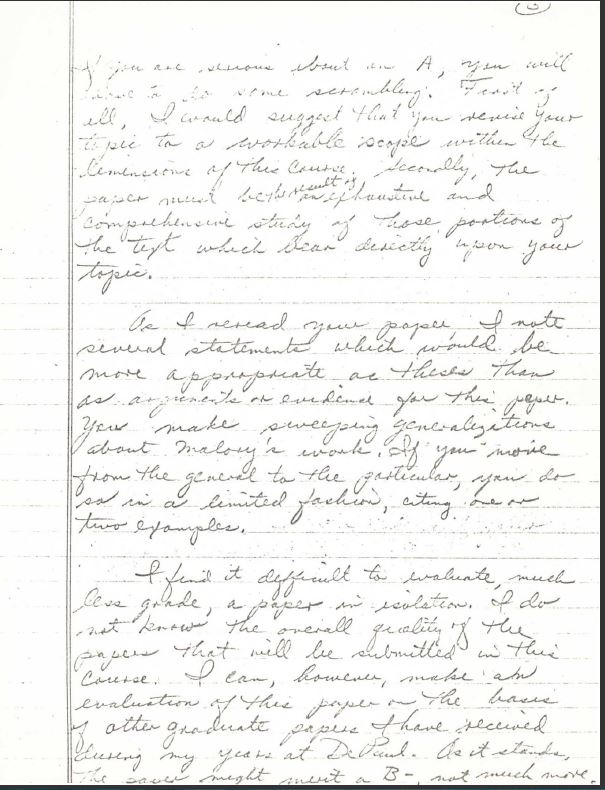 If you are serious about an A, you will
have to do some scrambling. First of
all, I would suggest that you revise your
topic to a workable scope within the
dimensions of this course. Secondly, the
paper must be the result of an exhaustive and
comprehensive study of those portions of
the text which bear directly upon your
topic.
As I reread your paper, I note
several statements which would be
more appropriate as theses than
as arguments or evidence for this paper.
You make sweeping generalizations
about Malory's work. If you move
from the general to the particular, you do
so in a limited fashion, citing one or
two examples.
I find it difficult to evaluate, much
less grade, a paper in isolation. I do
not know the overall quality of the
papers that will be submitted in this
course. I can, however, make an
evaluation of this paper on the basis
of other graduate papers I have received
during my years at DePaul. As it stands,
the paper might merit a B-, not much more.